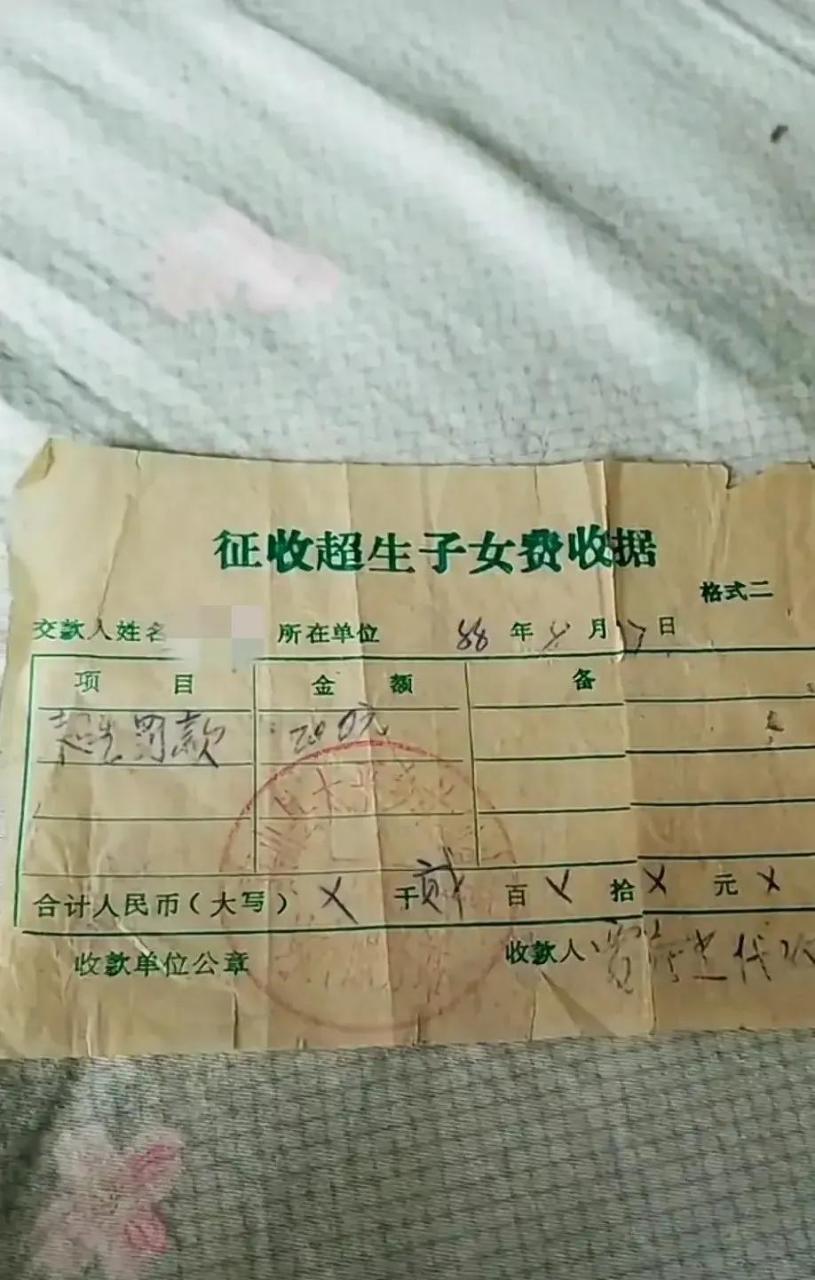 征收超生子女费收据
格式二
交款人姓名 所在单位 88年8月 日
项目 金额 备
超生罚款 200元
合计人民币（大写） ×千贰百×拾×元×
收款单位公章 收款人 代收